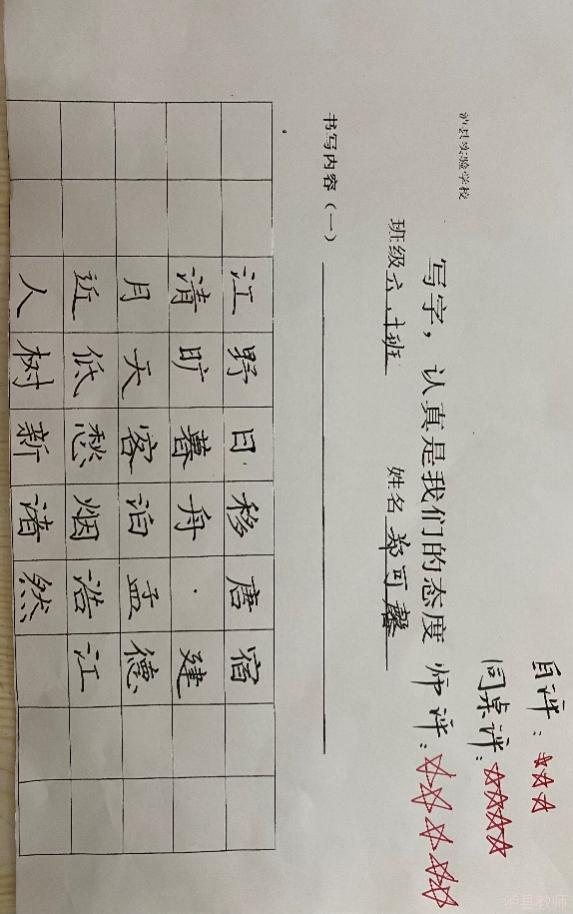 自评：☆☆☆
同桌评：☆☆☆☆
泸县实验学校
写字，认真是我们的态度 师评：☆☆☆☆☆
班级六.十班 姓名郑可馨
书写内容（一）
宿建德江
唐·孟浩然
移舟泊烟渚
日暮客愁新
野旷天低树
江清月近人
泸县教师